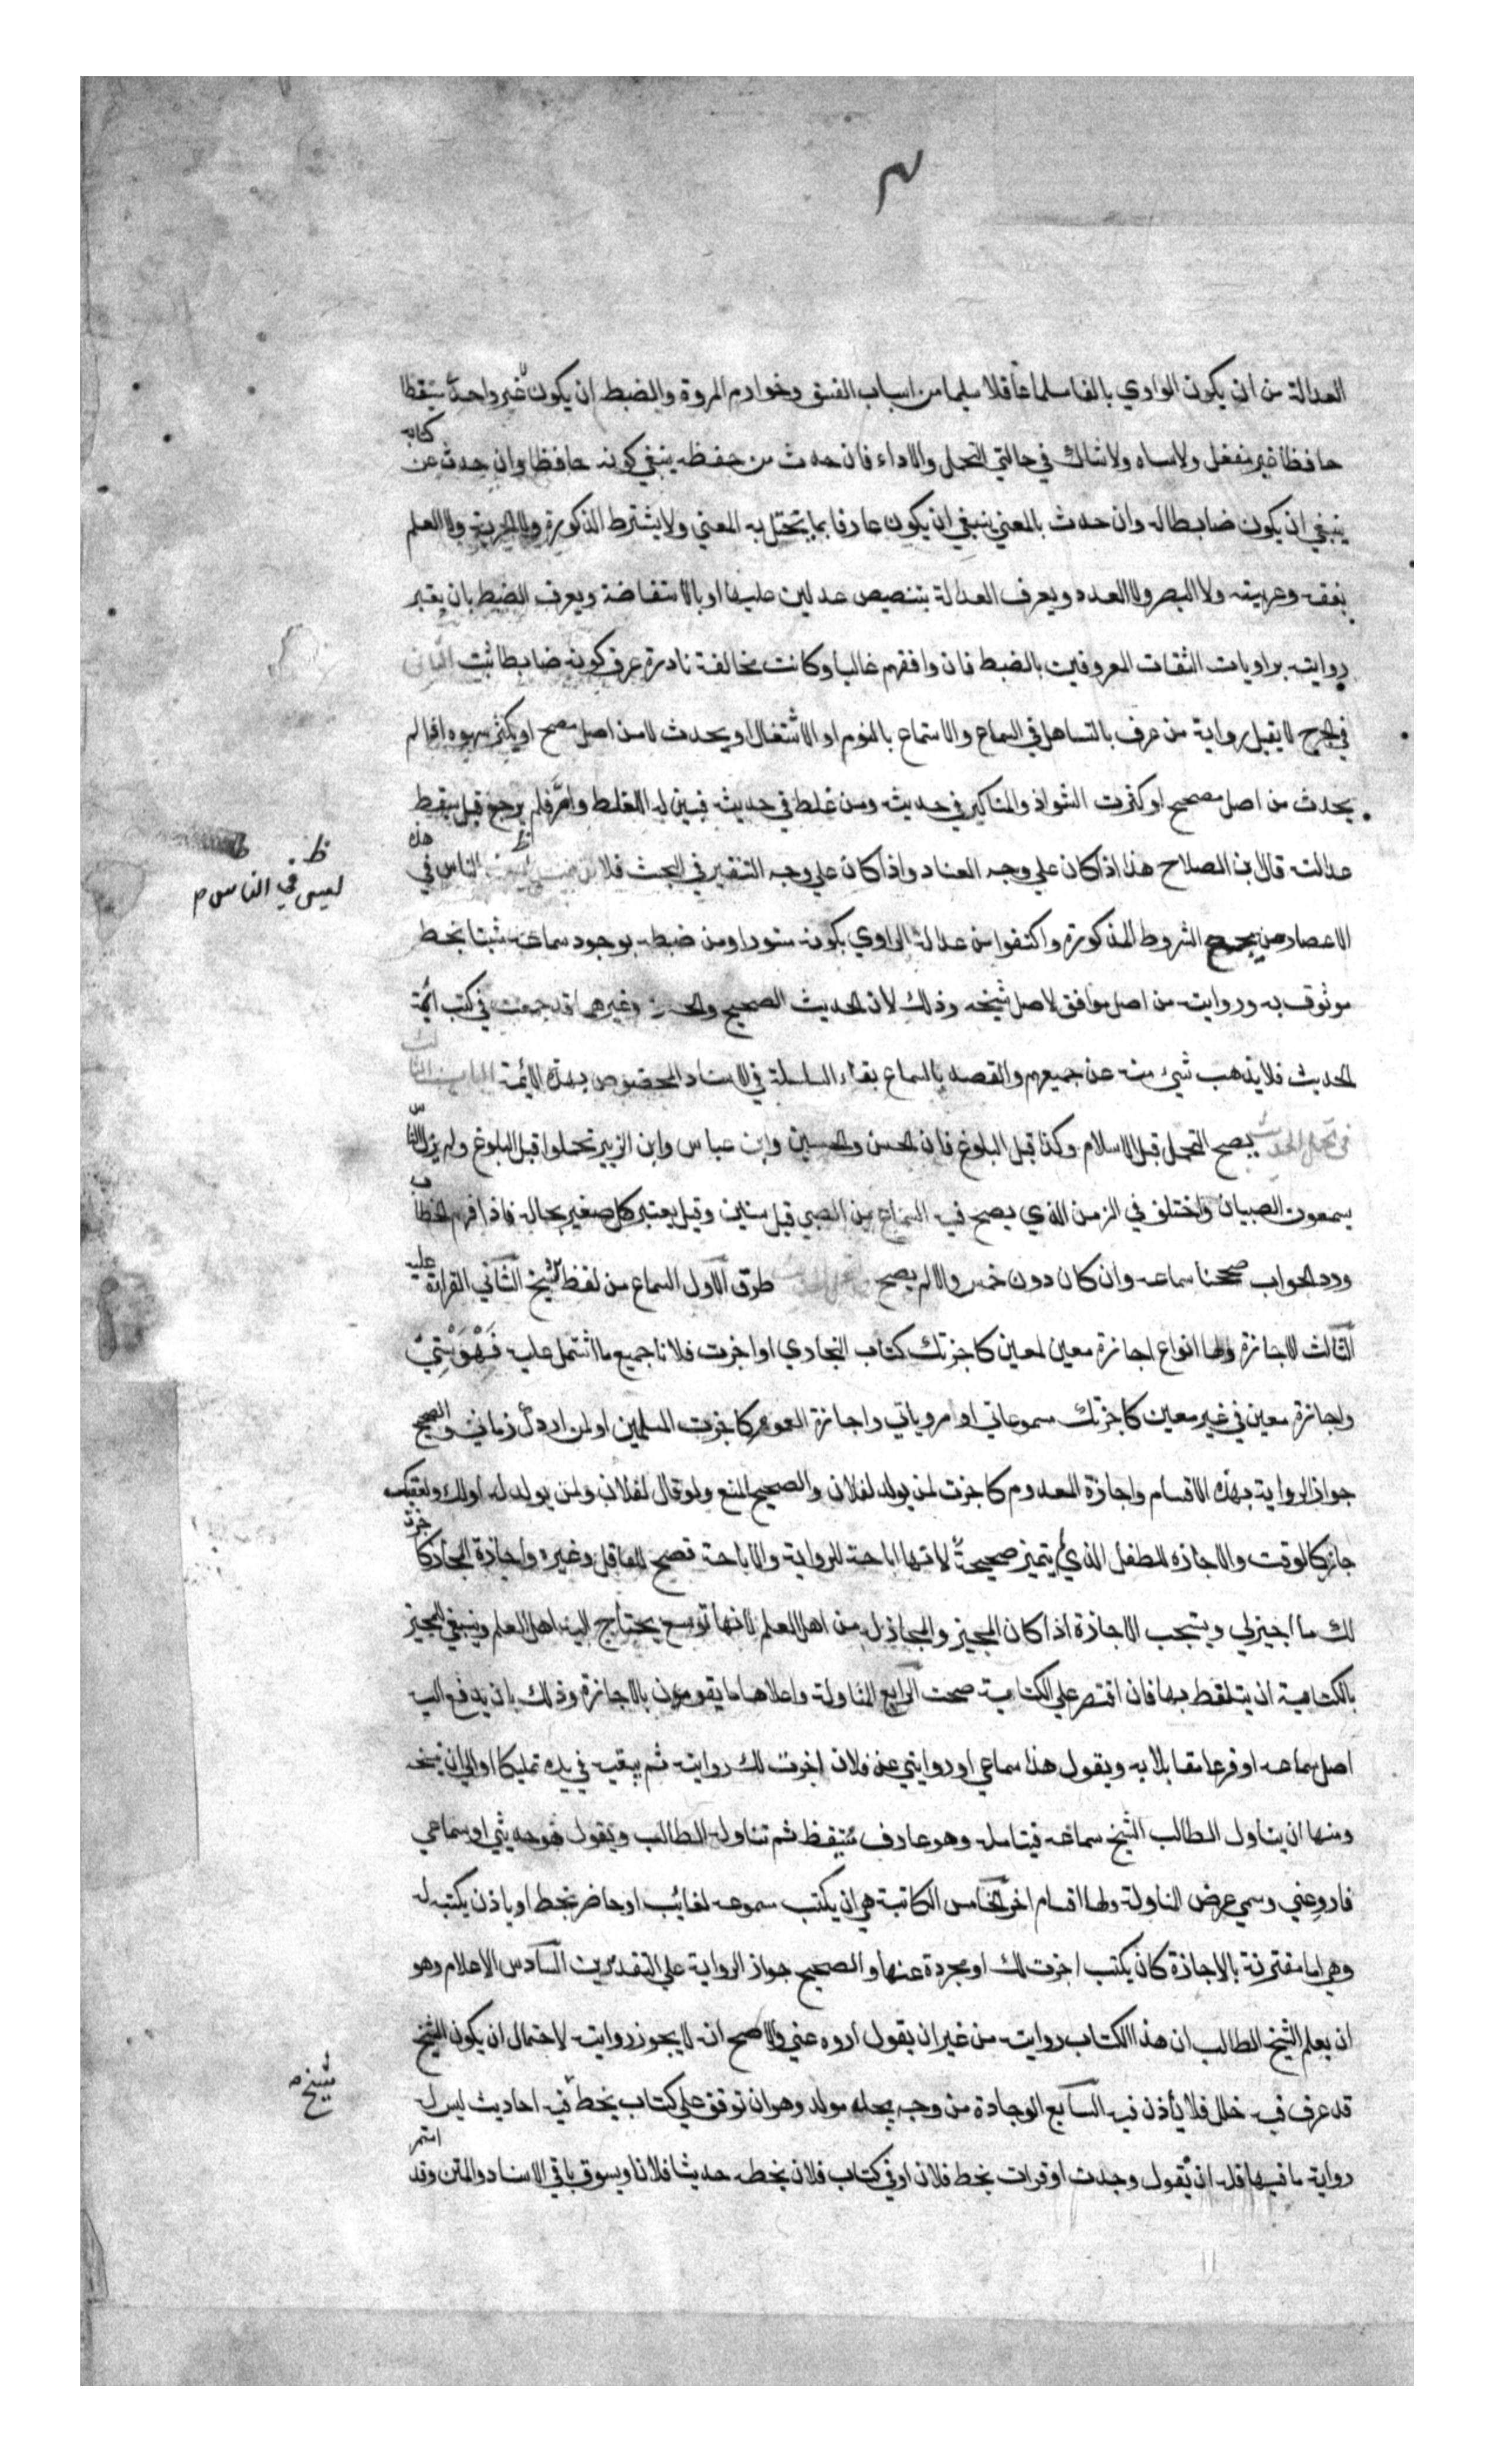 العدالة من ان يكون الراوي بالغا مسلما عاقلا سليما من اسباب الفسق وخوارم المروة والضبط ان يكون غير واحد متيقظا
حافظا غير مغفل ولا ساه ولا شاك في حالتي التحمل والاداء فان حدث من حفظه ينبغي كونه حافظا وان حدث عن كتابه
ينبغي ان يكون ضابطا له وان حدث بالمعني ينبغي ان يكون عارفا بما يختل به المعني ولا يشترط الذكورة ولا الحرية ولا العلم
بفقه وغريبه ولا البصر ولا العدد ويعرف العدالة بتنصيص عدلين عليها او بالاستفاضة ويعرف الضبط بان يعتبر
روايته براويات الثقات المعروفين بالضبط فان وافقهم غالبا وكانت مخالفة نادرة عرف كونه ضابطا ثبت الثاني
في الجرح لا يقبل رواية من عرف بالتساهل في السماع والاستماع بالنوم او الاشتغال او يحدث لا من اصل مصحح او يكثر سهوه اذا لم
يحدث من اصل مصحح او كثرت الشواذ والمناكير في حديثه ومن غلط في حديثه فبين له الغلط واصر فلم يرجع قيل يسقط
عدالته قال بن الصلاح هذا اذا كان علي وجه العناد واذا كان علي وجه التنقير في البحث فلا الناس في هذه
ليس في الناس م
الاعصار من يجمع الشروط المذكورة واكتفوا من عدالة الراوي بكونه مستورا ومن ضبطه بوجود سماعه مثبتا بخط
موثوق به وروايته من اصل موافق لاصل شيخه وذلك لان الحديث الصحيح والحسن وغيرهما قد جمعت في كتب ائمة
الحديث فلا يذهب شيء منه عن جميعهم والقصد بالسماع بقاء السلسلة في الاسناد المخصوص بهذه الائمة الباب الثالث
في تحمل الحديث يصح التحمل قبل الاسلام وكذا قبل البلوغ فان الحسن والحسين وابن عباس وابن الزبير تحملوا قبل البلوغ ولم يزل الناس
يسمعون الصبيان واختلف في الزمن الذي يصح فيه السماع من الصبي قيل سنين وقيل يعتبر كل صغير بحاله فاذا فهم الخطاب
ورد الجواب صححنا سماعه وان كان دون خمس والا لم يصح طرق الاول السماع من لفظ الشيخ الثاني القراءة عليه
الثالث الاجازة ولها انواع اجازة معين لمعين كاجزتك كتاب البخاري او اجزت فلانا جميع ما اشتمل عليه فهرستي
واجازة معين في غير معين كاجزتك مسموعاتي او مروياتي واجازة العموم كاجزت المسلمين او لمن ادرك زماني والصحيح
جواز الرواية بهذه الاقسام واجازة المعدوم كاجزت لمن يولد لفلان والصحيح المنع ولو قال لفلان ولمن يولد له او لك ولعقبك
جاز كالوقف والاجازة للطفل الذي يتميز صحيحة لانها اباحة للرواية والاباحة تصح للعاقل وغيره واجازة المجاز كاجزت
لك ما اجيز لي ويستحب الاجازة اذا كان المجيز والمجاز له من اهل العلم لانها توسع يحتاج اليه اهل العلم وينبغي للمجيز
بالكتابة ان يتلفظ بها فان اقتصر علي الكتابة صحت الرابع المناولة واعلاها ما يقومون بالاجازة وذلك بان يدفع اليه
اصل سماعه او فرعا مقابلا به ويقول هذا سماعي او روايتي عن فلان اجزت لك روايته ثم يبقيه في يده تمليكا او الي ان ينسخه
ومنها ان يناول الطالب الشيخ سماعه فيتامله وهو عارف متيقظ ثم تناوله الطالب ويقول هو حديثي او سماعي
فاروعني وسمي عرض المناولة ولها اقسام اخر الخامس المكاتبة هي ان يكتب مسموعه لغائب او حاضر بخطه او ياذن بكتبه له
وهي اما مقترنة بالاجازة كان يكتب اجزت لك او مجردة عنها والصحيح جواز الرواية علي التقديرين السادس الاعلام وهو
ان يعلم الشيخ الطالب ان هذا الكتاب روايته من غير ان يقول اروه عني والاصح انه لا يجوز روايته لاحتمال ان يكون الشيخ
قد عرف فيه خللا فلا ياذن فيه السابع الوجادة من وجد يجد مولد وهو ان توقف علي كتاب بخط شيخ فيه احاديث ليس له
رواية ما فيها فله ان يقول وجدت او قرات بخط فلان او في كتاب فلان بخطه حدثنا فلان ويسوق باقي الاسناد والمتن وقد استمر